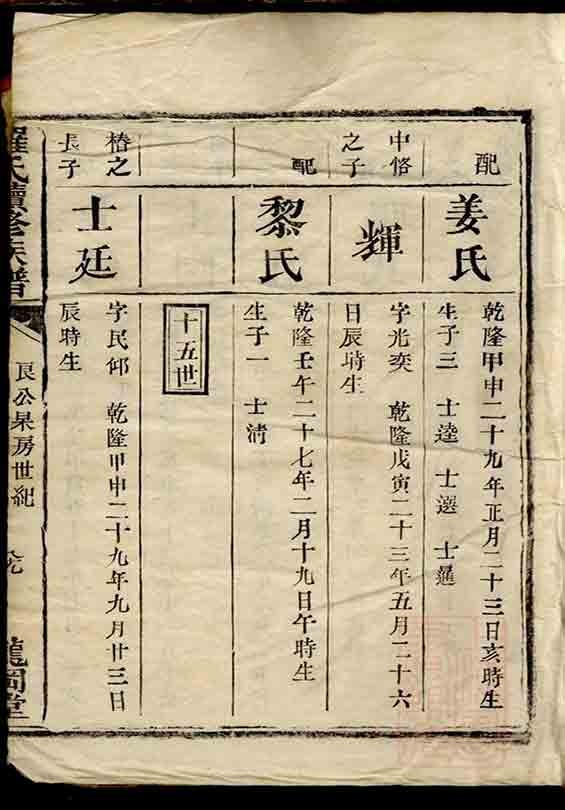 配
姜氏
乾隆甲申二十九年正月二十三日亥時生
生子三 士逵 士選 士暹
中恪
之子
輝
字光奕 乾隆戊寅二十三年五月二十六
日辰時生
配
黎氏
乾隆壬午二十七年二月十九日午時生
生子一 士清
十五世
樁之
長子
士廷
字民仰 乾隆甲申二十九年九月廿三日
辰時生
羅氏續修族譜
良公杲房世紀
龍岡堂